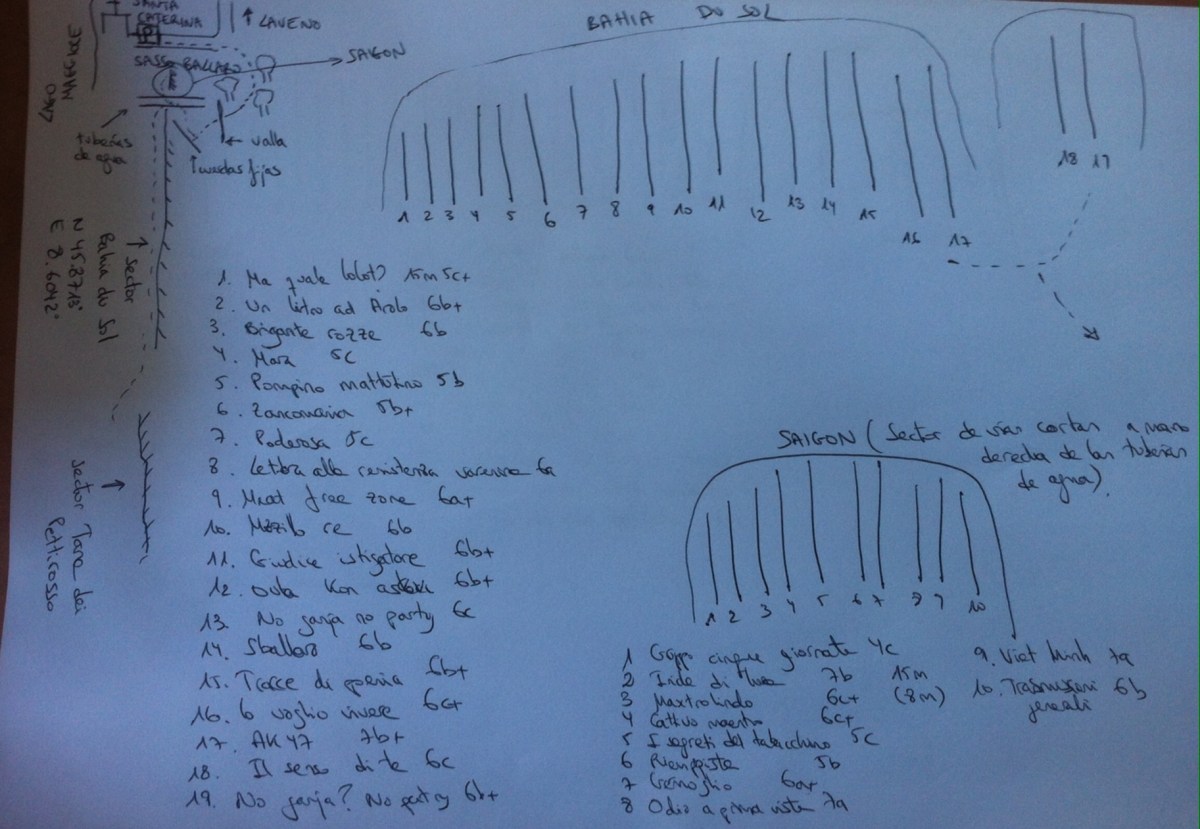 SANTA
CATERINA
↑ LAVENO
SASSO BALLARO
→ SAIGON
LAGO
MAGGIORE
tuberías
de agua
← valla
↑ cuerdas fijas
↑ sector
Bahia do Sol
N 45.8713°
E 8.6042°
↑
Sector Tana dei
Pettirosso
BAHIA DO SOL
1 2 3 4 5 6 7 8 9 10 11 12 13 14 15 16 17
18 17
1. Ma quale bolot? 15m 5c+
2. Un litro ad Arolo 6b+
3. Brigante rozze 6b
4. Mara 5c
5. Pompino mattutino 5b
6. Zanzomania 5b+
7. Poderosa 5c
8. Lettera alla resistenza varesina 6a
9. Meat free zone 6a+
10. re 6b
11. Giudice istigatore 6b+
12. Outa Kon 6b+
13. No ganja no party 6c
14. Sballaro 6b
15. Tracce di poesia 6b+
16. 6 voglio vivere 6c+
17. AK 47 7b+
18. Il senso di te 6c
19. No ganja? No party 6b+
SAIGON (Sector de vías cortas a mano
derecha de las tuberías
de agua).
1 2 3 4 5 6 7 8 9 10
1 Gruppo cinque giornate 4c
2 Iride di luna 7b 15m
3 Mastrolindo 6c+ (8m)
4 Cattivo maestro 6c+
5 I segreti del tabacchino 5c
6 5b
7 Germoglio 6a+
8 Odio a prima vista 7a
9. Viet Minh 7a
10. Trasmissioni 6b
geneali